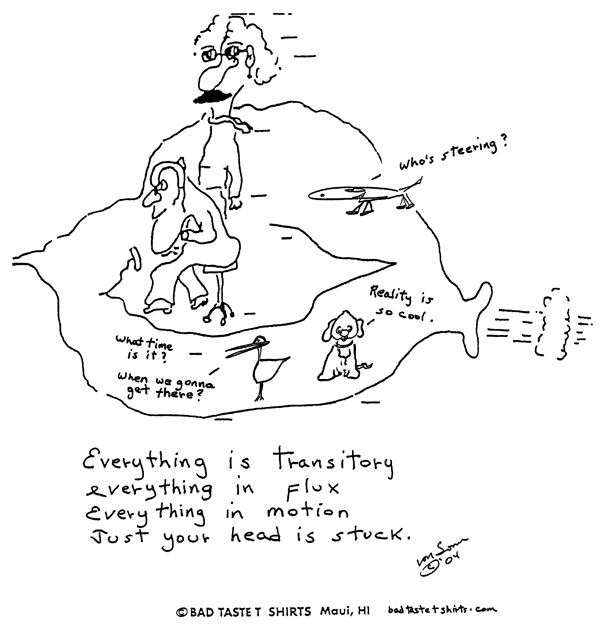 who's steering?
Reality is
so cool.
What time
is it?
When we gonna
get there?
Everything is Transitory
everything in Flux
Everything in motion
Just your head is stuck.
© '04
© BAD TASTE T SHIRTS Maui, HI badtastetshirts.com